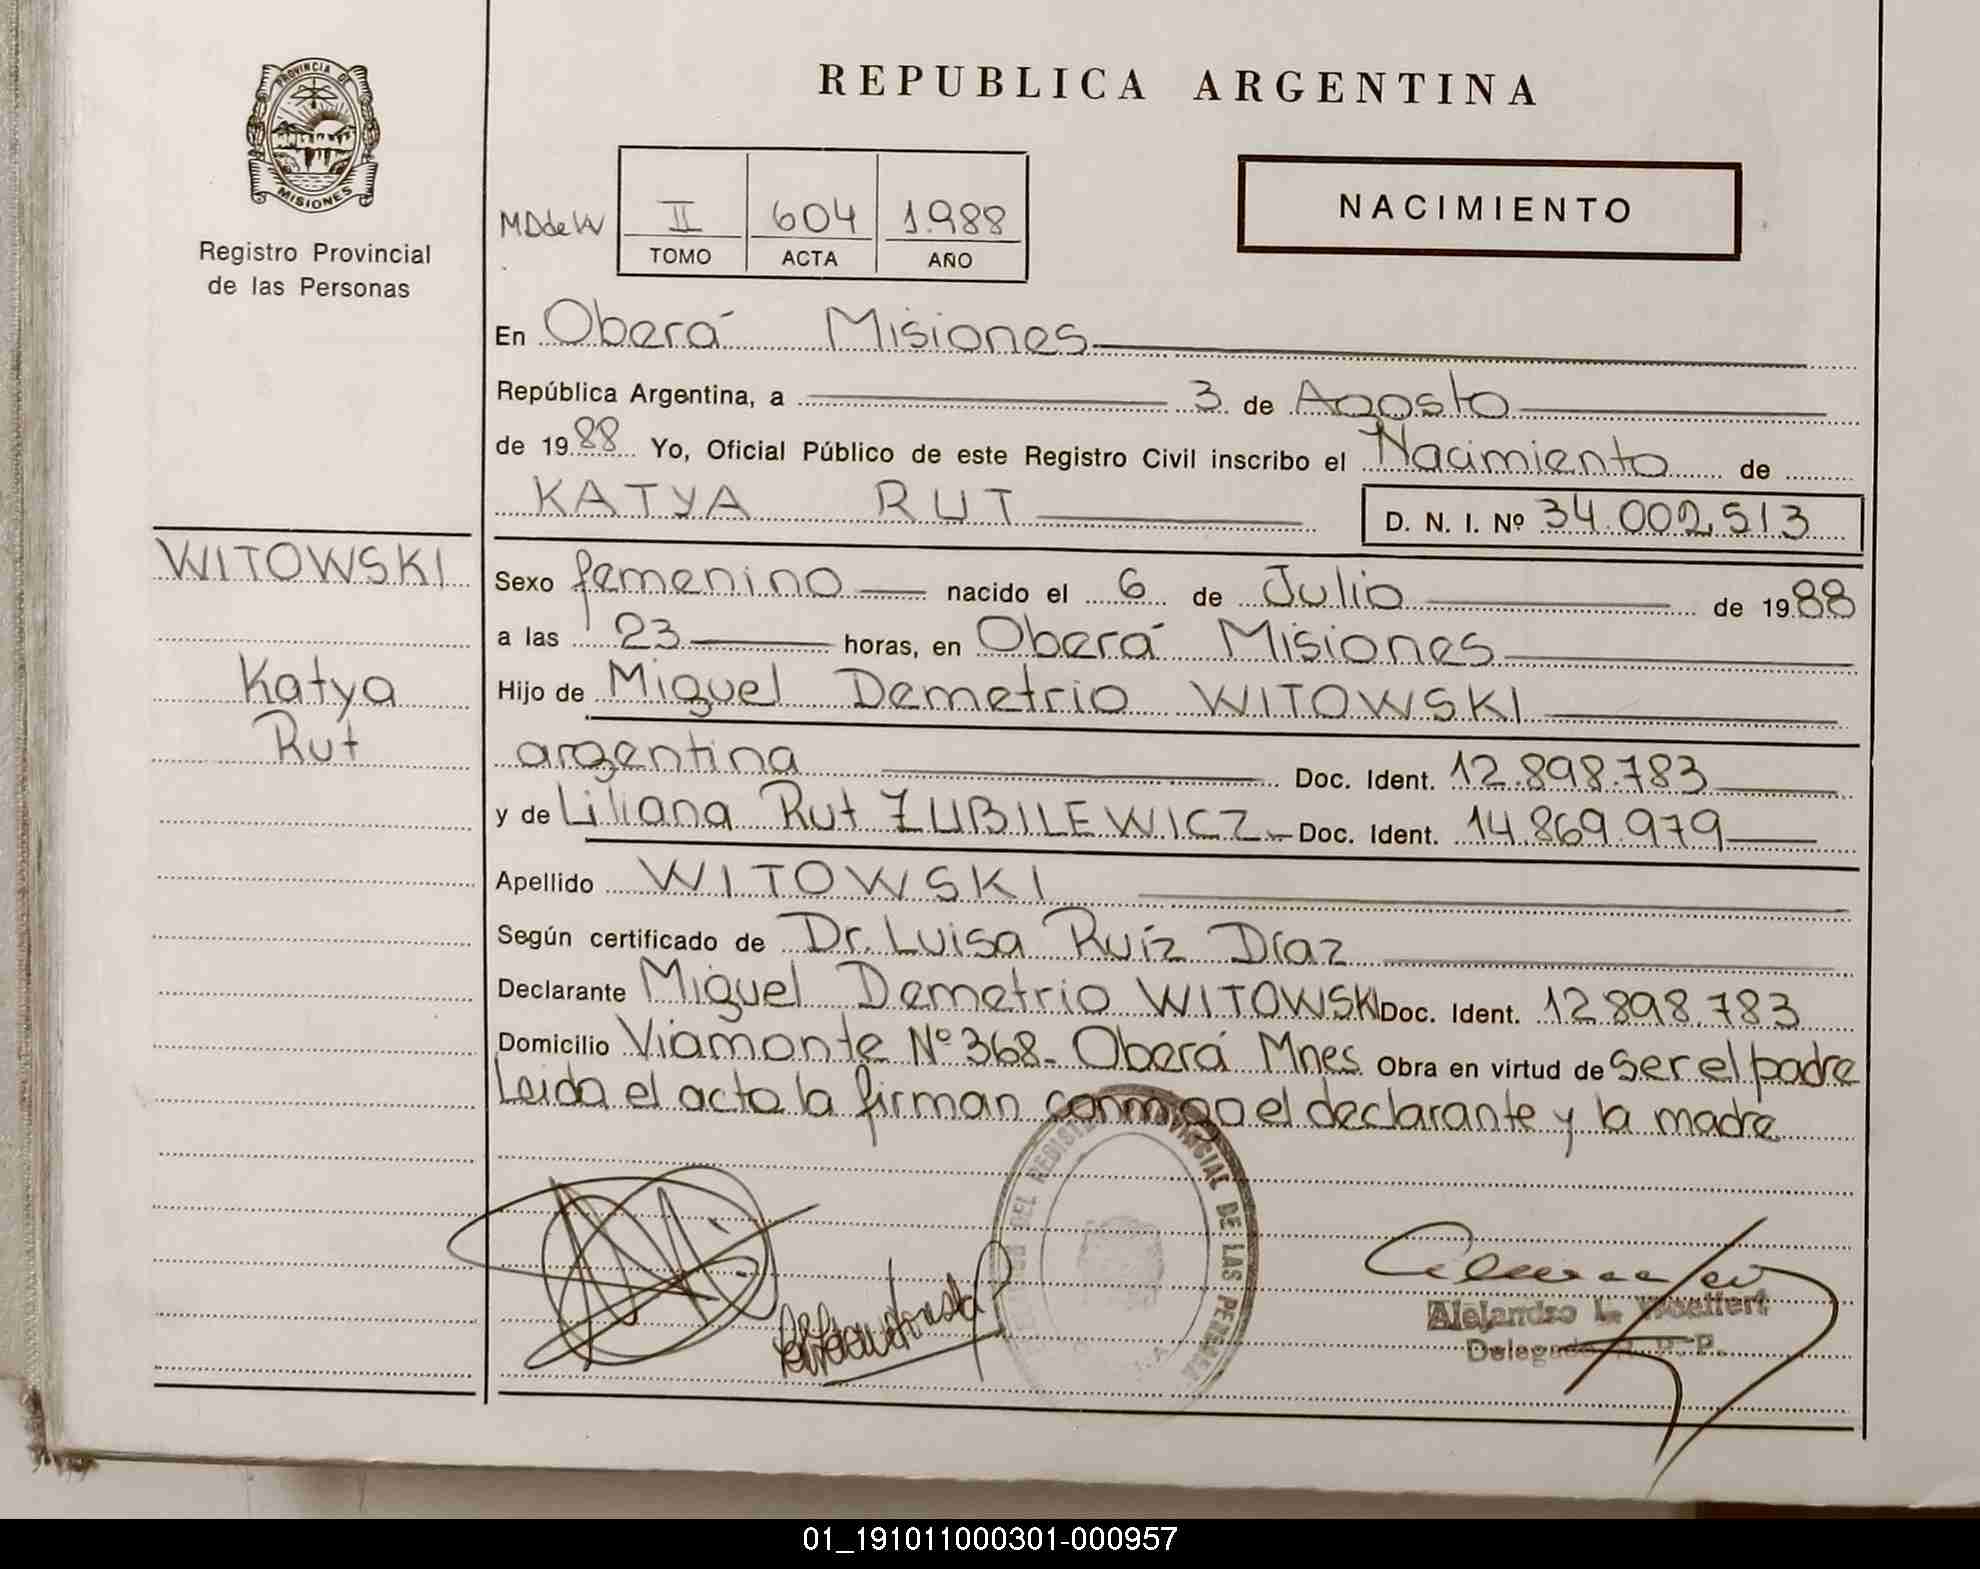 REPUBLICA ARGENTINA
PROVINCIA DE
MISIONES
Registro Provincial
de las Personas
MDdeW
II 604 1.988
TOMO ACTA AÑO
NACIMIENTO
En Oberá Misiones
República Argentina, a 3 de Agosto
de 1988 Yo, Oficial Público de este Registro Civil inscribo el Nacimiento de
KATYA RUT
D. N. I. Nº 34.002.513
WITOWSKI
Katya
Rut
Sexo femenino nacido el 6 de Julio de 1988
a las 23 horas, en Oberá Misiones
Hijo de Miguel Demetrio WITOWSKI
argentina Doc. Ident. 12.898.783
y de Liliana Rut ZUBILEWICZ Doc. Ident. 14.869.979
Apellido WITOWSKI
Según certificado de Dr. Luisa Ruíz Díaz
Declarante Miguel Demetrio WITOWSKI Doc. Ident. 12.898.783
Domicilio Viamonte Nº 368- Oberá Mnes Obra en virtud de ser el padre
Leida el acta la firman conmigo el declarante y la madre
DEL REGISTRO PROVINCIAL DE LAS PERSONAS
Alejandro L.
Delegado R. P. P.
01_191011000301-000957